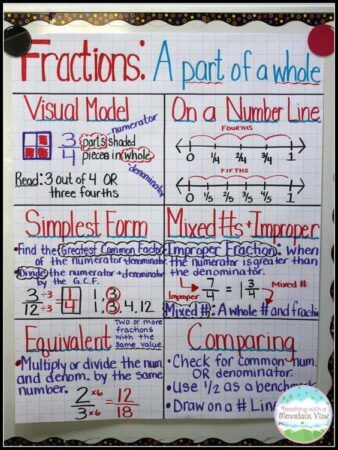 Fractions: A part of a whole
Visual Model
3 parts shaded
4 pieces in whole
numerator
denominator
Read: 3 out of 4 OR
three fourths
On a Number Line
FOURTHS
0 1/4 2/4 3/4 1
FIFTHS
0 1/5 2/5 3/5 4/5 1
Simplest Form
Find the Greatest Common Factor
of the numerator+denominator.
Divide the numerator+denominator
by the G.C.F.
3 ÷3 1 1, 3
12 ÷3 4 1, 3, 4, 12
Mixed #s + Improper
Improper Fraction: when
the numerator is greater than
the denominator.
7/4 = 1 3/4
Improper
Mixed #
Mixed #: A whole # and
Equivalent
Two or more
fractions
with the
same value.
• Multiply or divide the num.
and denom. by the same
number.
2 ×6 = 12
3 ×6 18
Comparing
• Check for common num.
OR denominator.
• Use 1/2 as a
• Draw on a # Line
Teaching with a
Mountain View